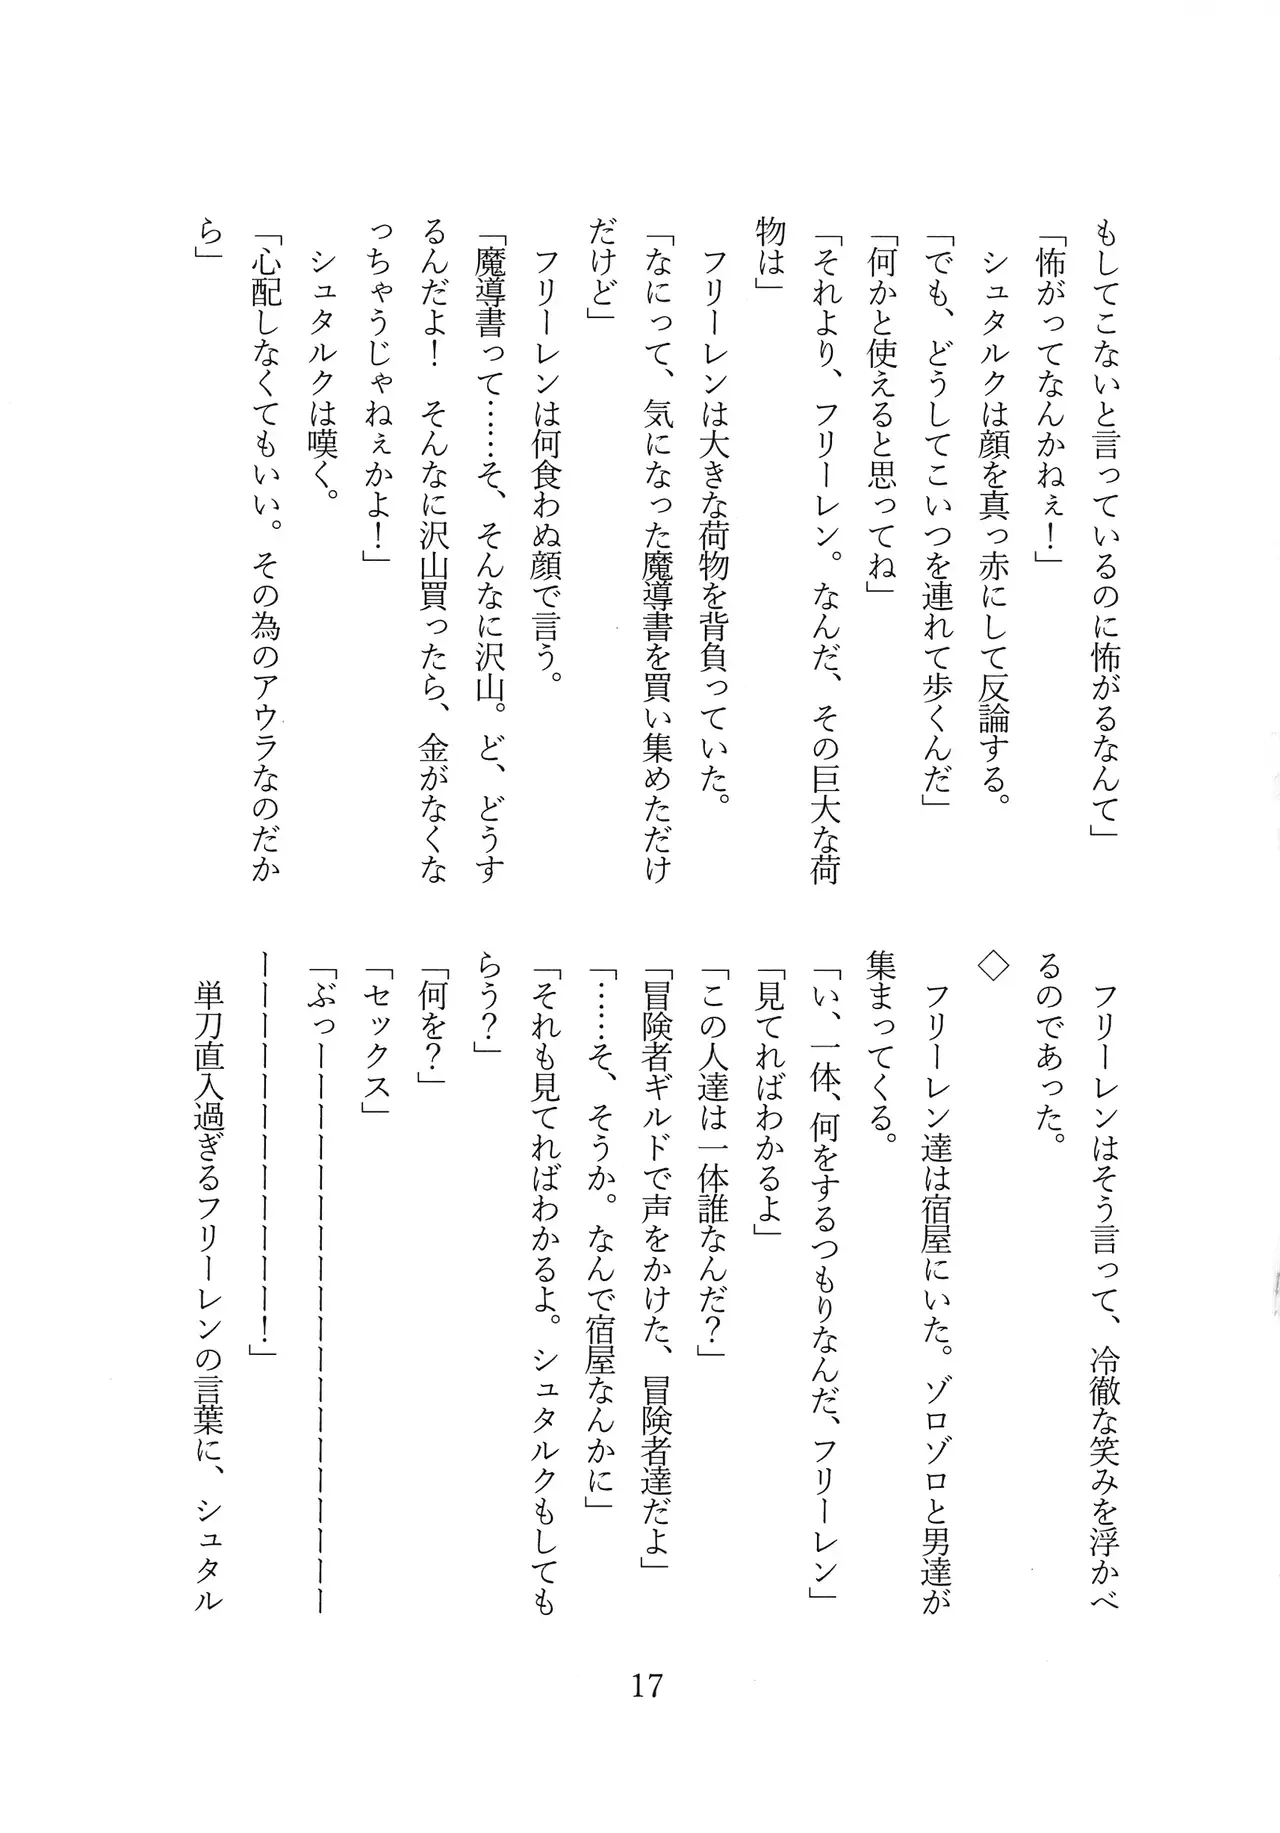 もしてこないと言っているのに怖がるなんて」
「怖がってなんかねぇ！」
シュタルクは顔を真っ赤にして反論する。
「でも、どうしてこいつを連れて歩くんだ」
「何かと使えると思ってね」
「それより、フリーレン。なんだ、その巨大な荷
物は」
フリーレンは大きな荷物を背負っていた。
「なにって、気になった魔導書を買い集めただけ
だけど」
フリーレンは何食わぬ顔で言う。
「魔導書って……そ、そんなに沢山。ど、どうす
るんだよ！　そんなに沢山買ったら、金がなくな
っちゃうじゃねぇかよ！」
シュタルクは嘆く。
「心配しなくてもいい。その為のアウラなのだか
ら」
フリーレンはそう言って、冷徹な笑みを浮かべ
るのであった。
◇
フリーレン達は宿屋にいた。ゾロゾロと男達が
集まってくる。
「い、一体、何をするつもりなんだ、フリーレン」
「見てればわかるよ」
「この人達は一体誰なんだ？」
「冒険者ギルドで声をかけた、冒険者達だよ」
「……そ、そうか。なんで宿屋なんかに」
「それも見てればわかるよ。シュタルクもしても
らう？」
「何を？」
「セックス」
「ぶっーーーーーーーーーーーーーーーーーー
ーーーーーーーーーーーー！」
単刀直入過ぎるフリーレンの言葉に、シュタル
17